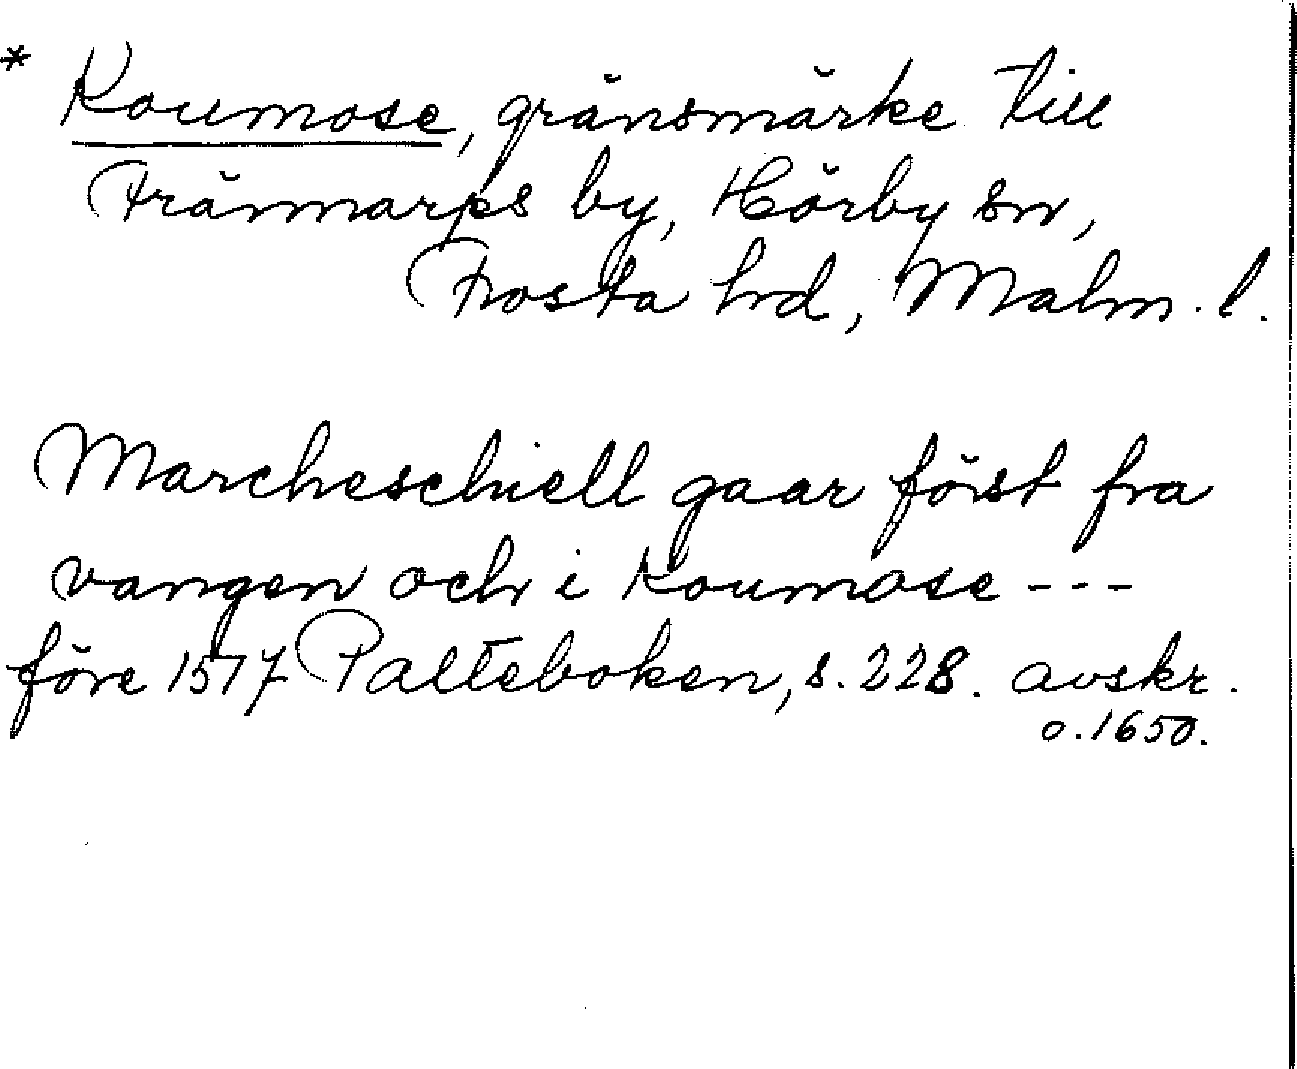 * Koumose, gränsmärke till
Fränmarps by, Hörby sn,
Frosta hrd, Malm. l.
Marcheschiell gaar först fra
vangen och i Koumose ---
före 1577 Palteboken, s. 228. avskr.
o. 1650.